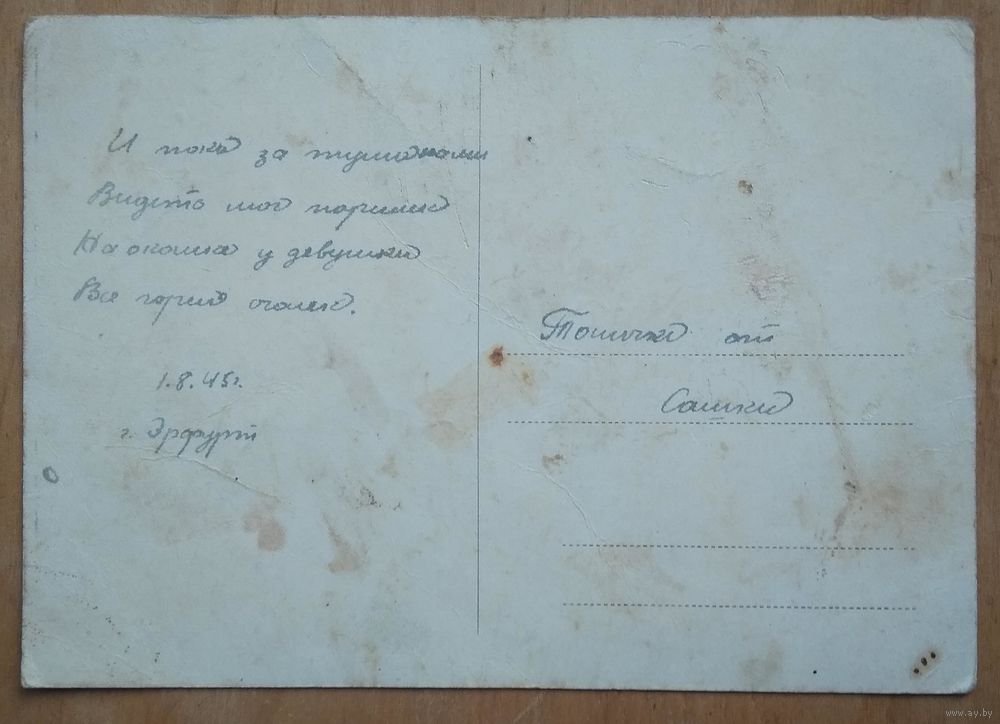 И пока за туманами
Видеть мог паринек
На окошке у девушки
Все горел огонек.
1.8.45г.
г. Эрфурт
Тошички от
Сашки
www.ay.by